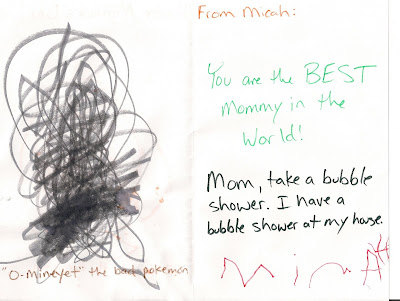 From Micah:
You are the BEST
Mommy in the
World!
Mom, take a bubble
shower. I have a
bubble shower at my house.
"O-mineyet" the bad pokemon
MicAH